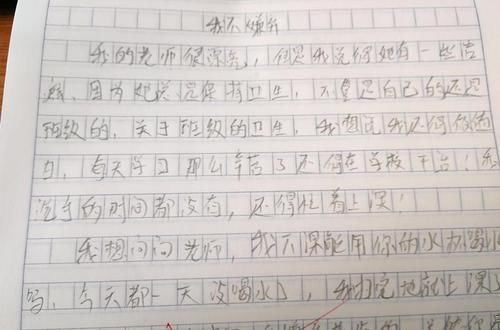 我不嫌弃
我的老师很漂亮，但是我觉得她有一些洁
癖，因为她总是保持卫生，不管是自己的还是
班级的，关于班级的卫生，我想说我还得很
白，每天学习那么辛苦了还得在学校干活！
洗手的时间都没有，还得忙着上课！
我想问问老师，我下课能用你的水杯喝
吗，今天都一天没喝水了，我扫完地就上课